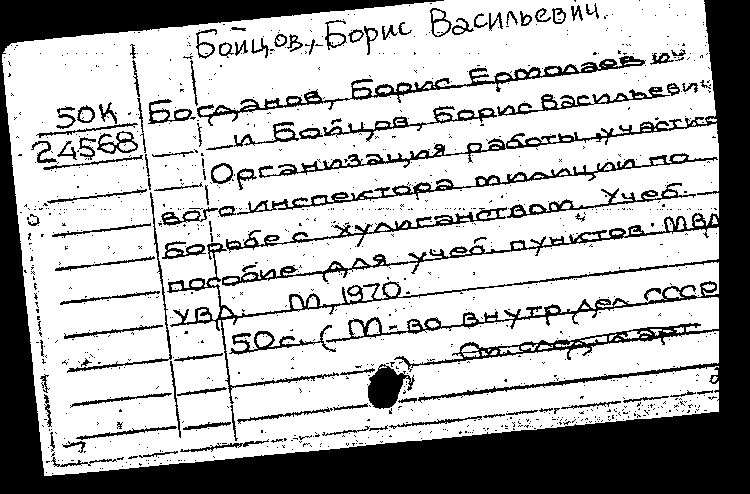 Бойцов, Борис Васильевич.
50К Богданов, Борис Ермолаевич
24568 и Бойцов, Борис Васильевич
Организация работы участко
вого инспектора милиции по
борьбе с хулиганством. Учеб.
пособие для учеб. пунктов МВД
УВД. М., 1970.
50с. (М-во внутр. дел СССР
См. след. карт